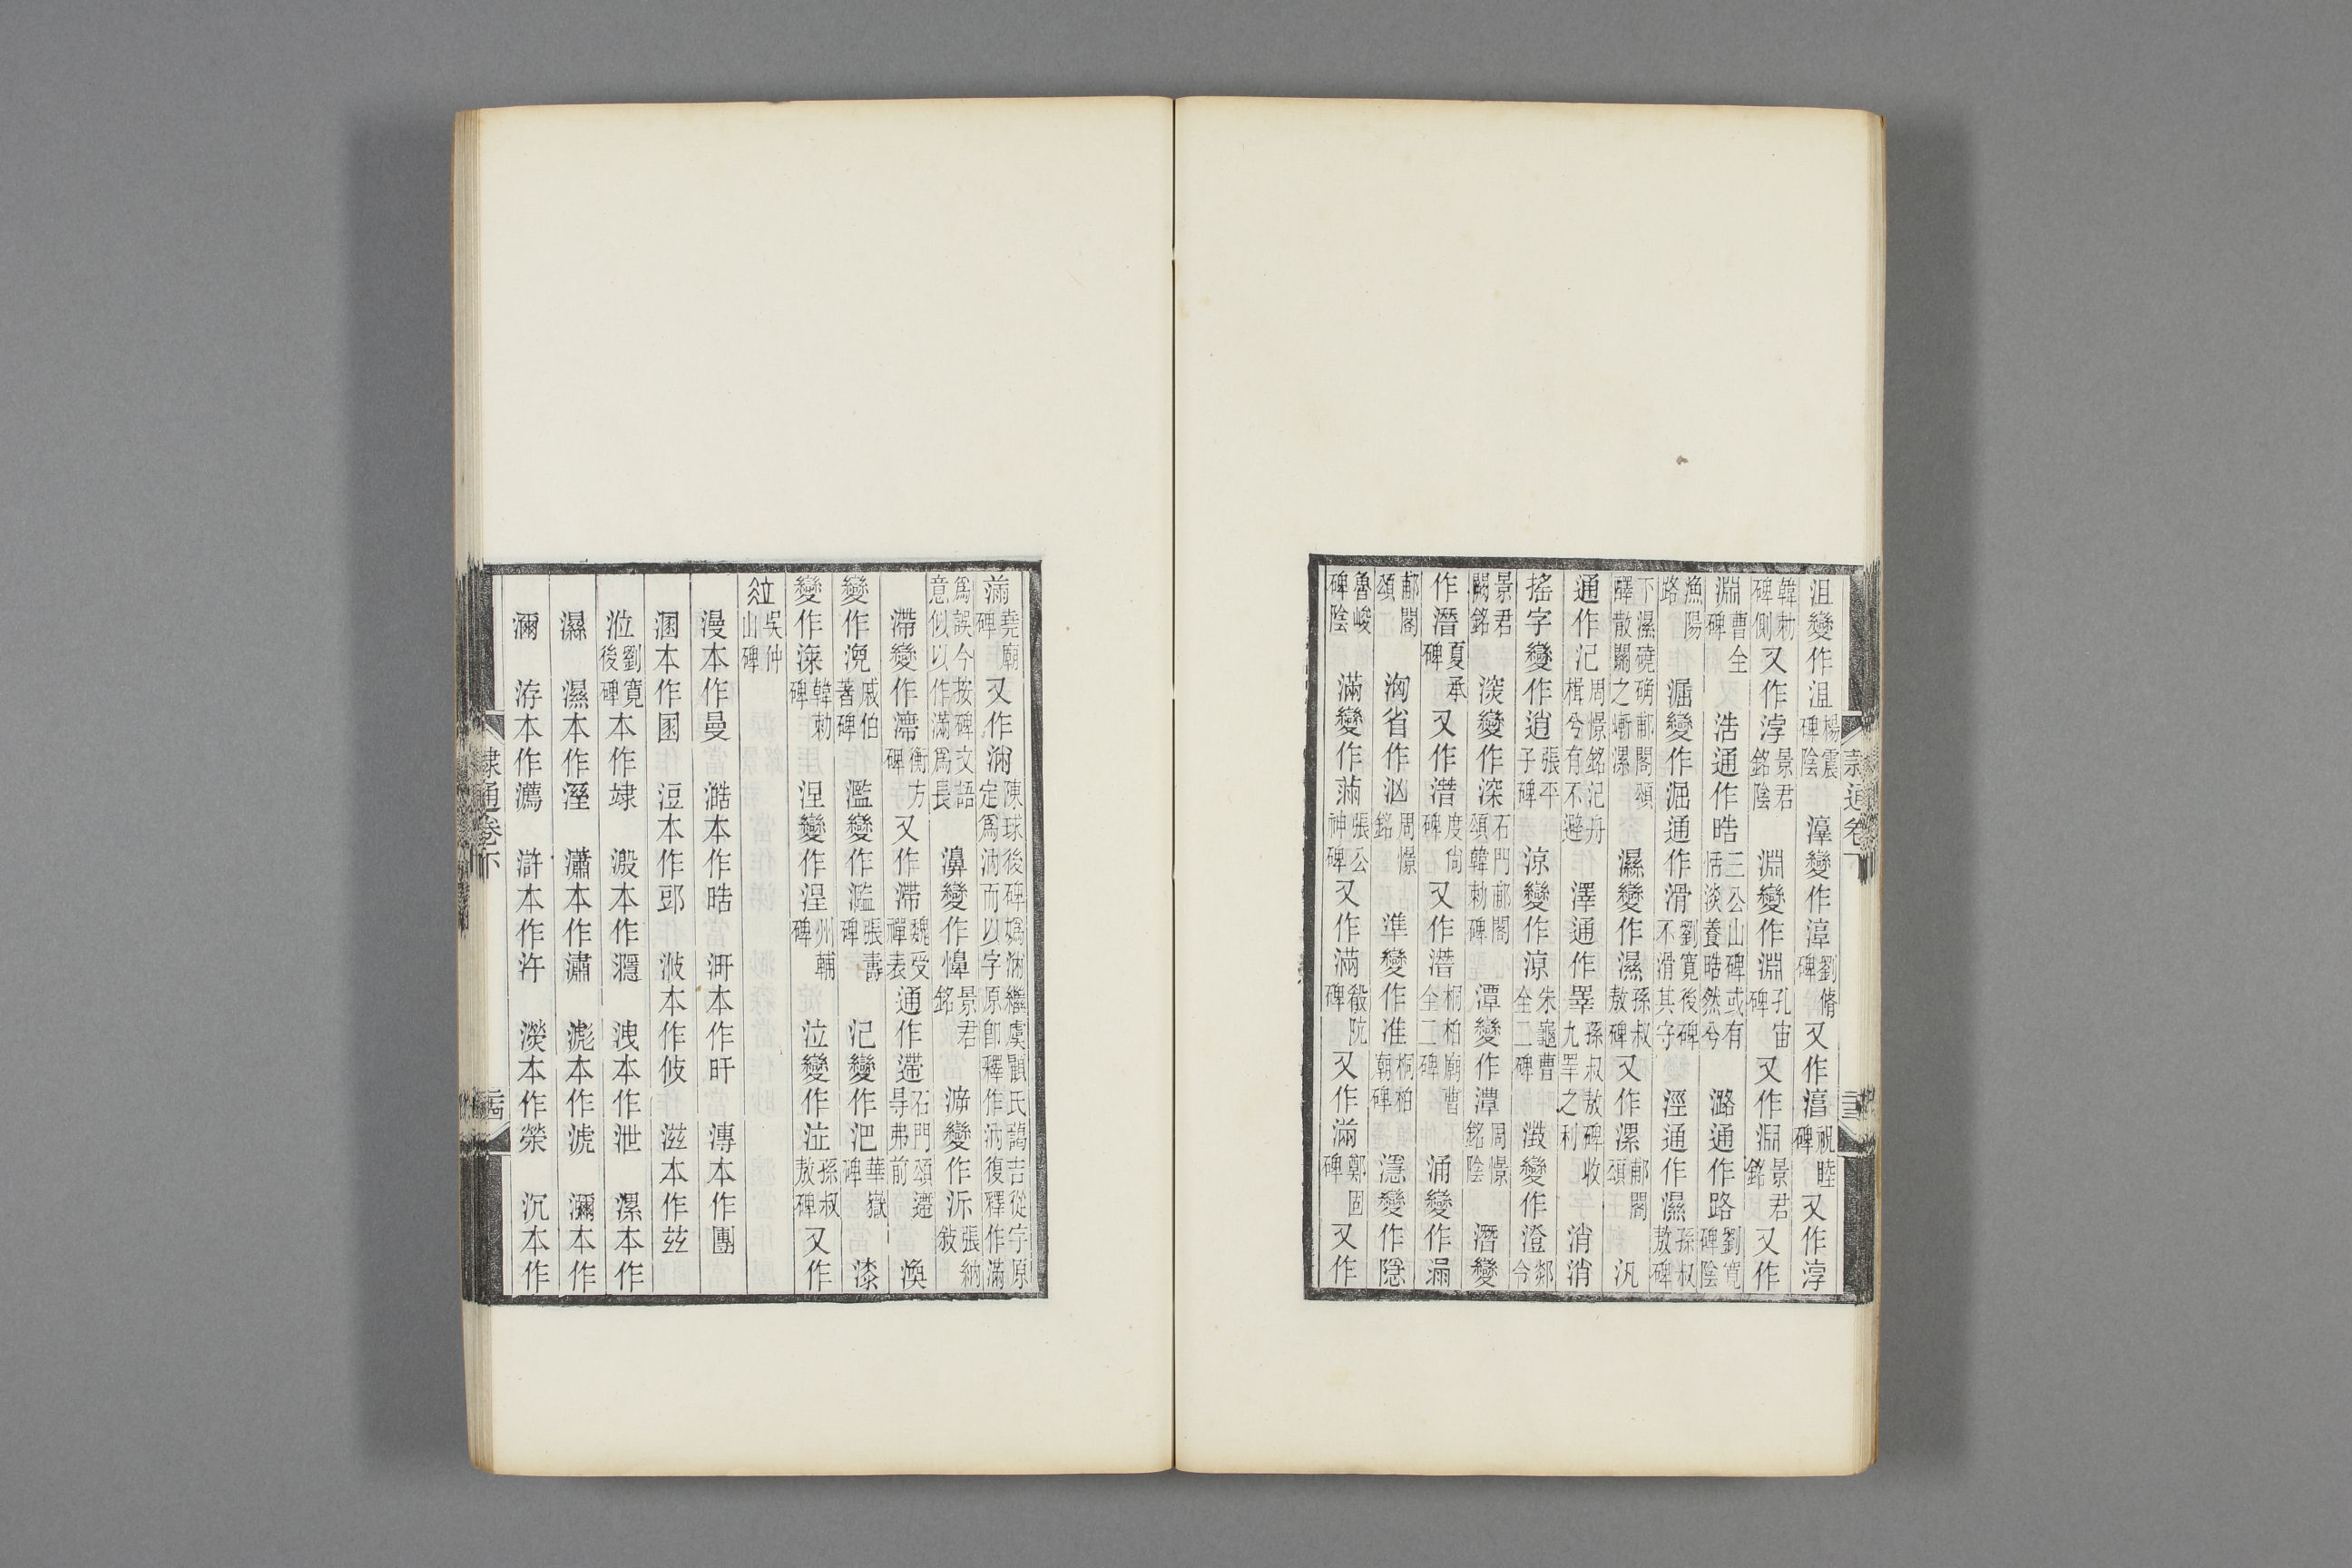 沮變作沮楊震碑陰 漳變作漳劉脩碑又作㵗祝睦碑又作淳
韓勅碑側又作淳景君銘陰 淵變作淵孔宙碑又作淵景君銘又作
淵曹全碑 浩通作晧三公山碑或有恬淡養晧然兮 潞通作路劉寬碑陰
漁陽路 淈變作淈通作滑劉寬後碑不滑其守 溼通作濕孫叔敖碑
下濕磽确郙閣頌醳散關之嶃漯 濕變作濕孫叔敖碑又作漯郙閣頌 汎
通作氾周憬銘氾舟楫兮有不避 澤通作睪孫叔敖碑收九睪之利 消消
搖字變作逍張平子碑 涼變作凉朱龜曹全二碑 澂變作澄郯令
景君闕銘 湥變作深石門郙閣頌韓勅碑 潭變作潭周憬銘陰 潛變
作潛夏承碑又作潜度尚碑又作潛桐柏廟曹全二碑 涌變作漏
郙閣頌 洶省作汹周憬銘 準變作准桐柏廟碑 濦變作隱
魯峻碑陰 滿變作蒲張公神碑又作滿殽阬碑又作滿鄭固碑又作
隸通卷下
堯廟碑又作㳽陳球後碑嬀汭繼虞顧氏藹吉從字原定爲汭而以字原卽釋作汭復釋作滿
爲誤今按碑文語意似以作滿爲長 濞變作㵒景君銘 㴑變作泝張納敍
滯變作滯衡方碑又作滯魏受禪表通作遰石門頌遰㝵弗前 渙
變作渙戚伯著碑 濫變作濫張壽碑 汜變作汜華嶽碑 漆
變作淶韓勅碑 涅變作涅州輔碑 泣變作泣孫叔敖碑又作
吳仲山碑
漫本作曼 澔本作晧 汧本作幵 漙本作團
溷本作圂 浢本作郖 浟本作攸 滋本作兹
涖劉寬後碑本作𨽿 濦本作㶏 洩本作泄 漯本作
濕 濕本作溼 瀟本作潚 滮本作淲 瀰本作
濔 洊本作瀳 滸本作汻 濙本作滎 沉本作
隸通卷下